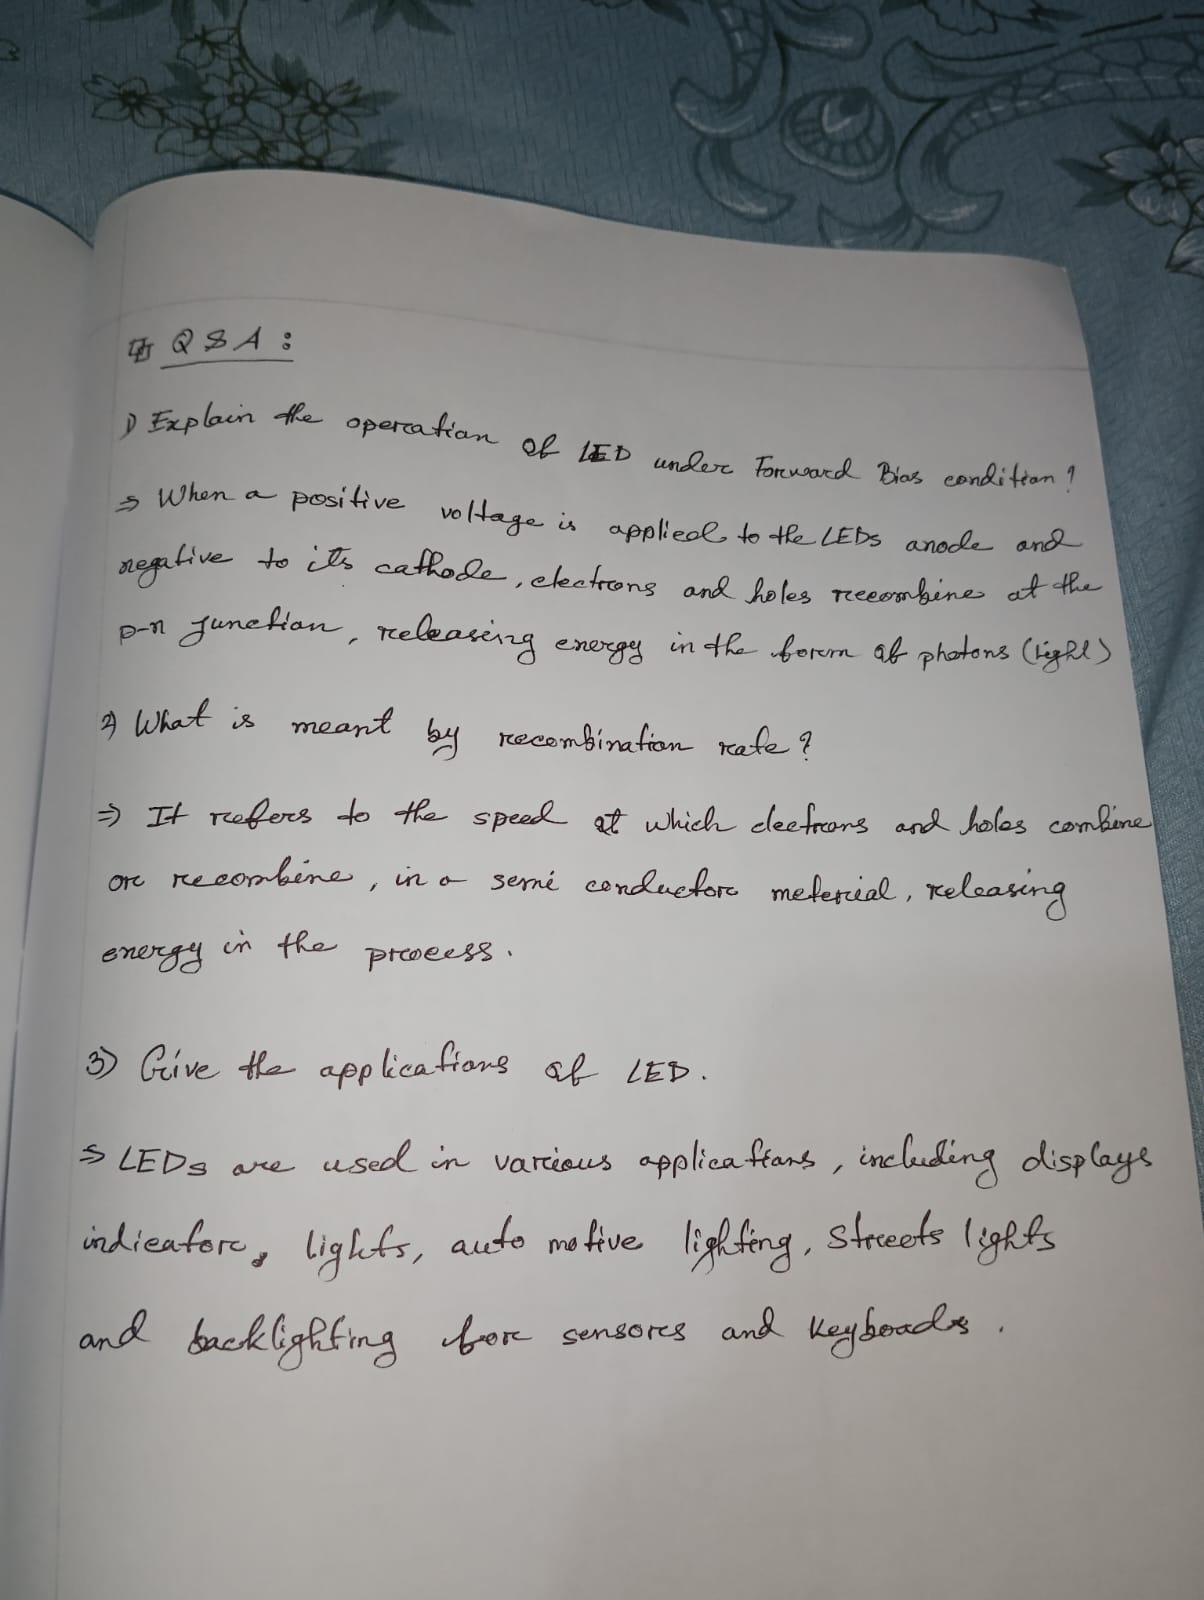 Q & A :
1) Explain the operation of LED under Forward Bias condition?
⇒ When a positive voltage is applied to the LEDs anode and
negative to its cathode, electrons and holes recombine at the
p-n junction, releasing energy in the form of photons (light)
2) What is meant by recombination rate?
⇒ It refers to the speed at which electrons and holes combine
or recombine, in a semi conductor meterial, releasing
energy in the process.
3) Give the applications of LED.
⇒ LEDs are used in various applications, including displays
indicator, lights, auto motive lighting, Streets lights
and backlighting for sensors and keyboads.